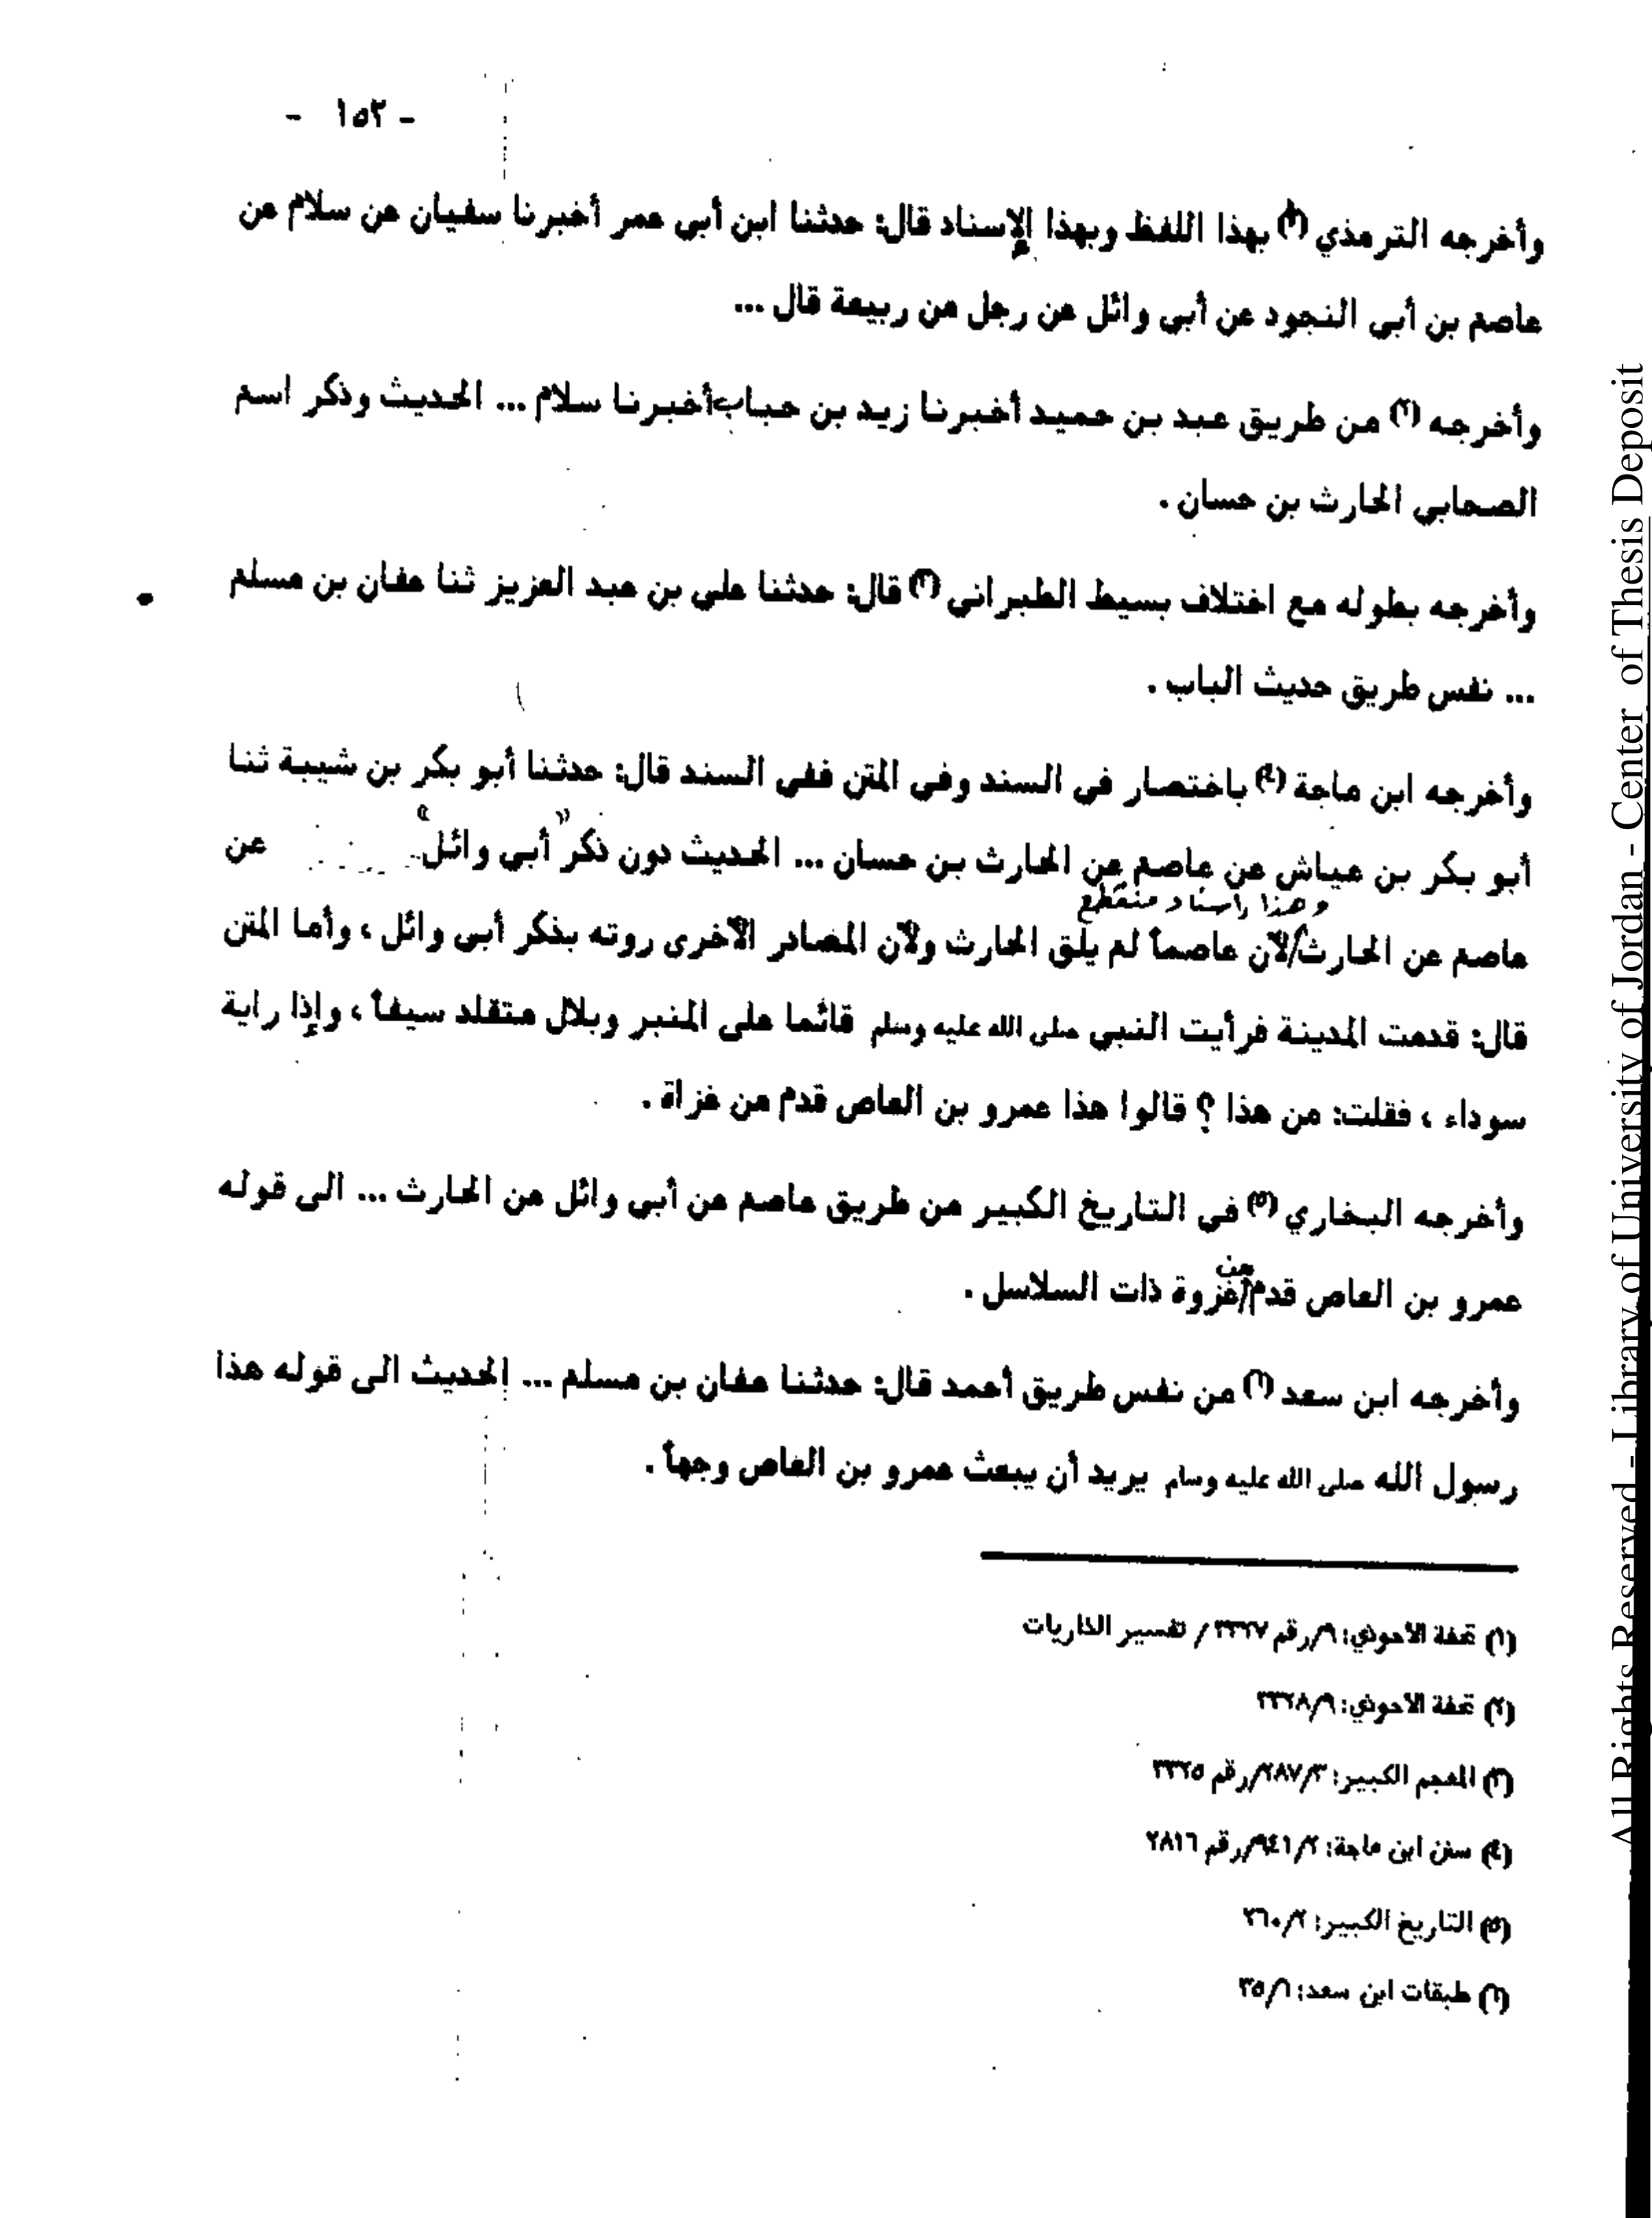 - ١٥٢ -
وأخرجه الترمذي (١) بهذا اللفظ وبهذا الإسناد قال: حدثنا ابن أبي عمر أخبرنا سفيان عن سلام عن
عاصم بن أبي النجود عن أبي وائل عن رجل من ربيعة قال ...
وأخرجه (٢) من طريق عبد بن حميد أخبرنا زيد بن حباب أخبرنا سلام ... الحديث وذكر اسم
الصحابي الحارث بن حسان .
وأخرجه بطوله مع اختلاف بسيط الطبراني (٣) قال: حدثنا علي بن عبد العزيز ثنا عفان بن مسلم
... نفس طريق حديث الباب .
وأخرجه ابن ماجة (٤) باختصار في السند وفي المتن ففي السند قال: حدثنا أبو بكر بن شيبة ثنا
أبو بكر بن عياش عن عاصم عن الحارث بن حسان ... الحديث دون ذكر "أبي وائل" عن
وهذا إسناد منقطع
عاصم عن الحارث/لأن عاصماً لم يلق الحارث ولأن المصادر الأخرى روته بذكر أبي وائل ، وأما المتن
قال: قدمت المدينة فرأيت النبي صلى الله عليه وسلم قائما على المنبر وبلال متقلد سيفاً ، وإذا راية
سوداء ، فقلت: من هذا ؟ قالوا هذا عمرو بن العاص قدم من غزاة .
وأخرجه البخاري (٥) في التاريخ الكبير من طريق عاصم عن أبي وائل عن الحارث ... الى قوله
من
عمرو بن العاص قدم/غزوة ذات السلاسل .
وأخرجه ابن سعد (٦) من نفس طريق أحمد قال: حدثنا عفان بن مسلم ... الحديث الى قوله هذا
رسول الله صلى الله عليه وسلم يريد أن يبعث عمرو بن العاص وجهاً .
(١) تحفة الأحوذي: ٩/رقم ٣٣٢٧ / تفسير الذاريات
(٢) تحفة الأحوذي: ٣٣٢٨/٩
(٣) المعجم الكبير: ٢٨٧/٣/رقم ٣٣٢٥
(٤) سنن ابن ماجة: ٩٤١/٢/رقم ٢٨١٦
(٥) التاريخ الكبير: ٢٦٠/٢
(٦) طبقات ابن سعد: ٣٥/٦
All Rights Reserved - Library of University of Jordan - Center of Thesis Deposit